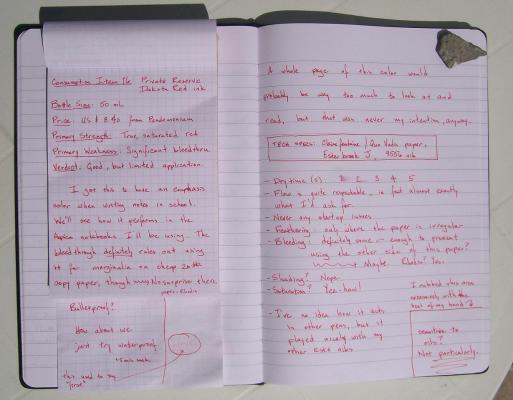 Consumption Item file Private Reserve
Dakota Red ink
Bottle Size: 50 mL
Price: US $ 8.40 from Pendemonium
Primary Strength: True, saturated red
Primary Weakness: Significant bleedthru
Verdict: Good, but limited application.
I got this to have an emphasis
color when writing notes in school.
We'll see how it performs in the
notebooks I'll be using. The
bleedthrough definitely rules out using
it for marginalia on cheap
copy paper, though no surprises there.
paper - Rhodia
Bulletproof?
How about we
just try waterproof.
~5 min soak
this used to say
"first"
A whole page of this color would
probably be way too much to look at and
read, but that was never my intention, anyway.
TECH SPECS: Clairefontaine / Quo Vadis paper,
Esterbrook J, 9556 nib
- Drytime (s): 1 2 3 4 5
- Flow is quite respectable, in fact almost exactly
what I'd ask for.
- Never any startup issues.
- Feathering: only where the paper is irregular
- Bleeding: definitely some - enough to prevent
using the other side of this paper?
Maybe. Rhodia? Yes.
- Shading? Nope.
- Saturation? Yee-haw!
- I've no idea how it acts
in other pens, but it
played nicely with my
other Estie nibs
I rubbed this area
excessively with the
heel of my hand
sensitives to
oils?
Not particularly.